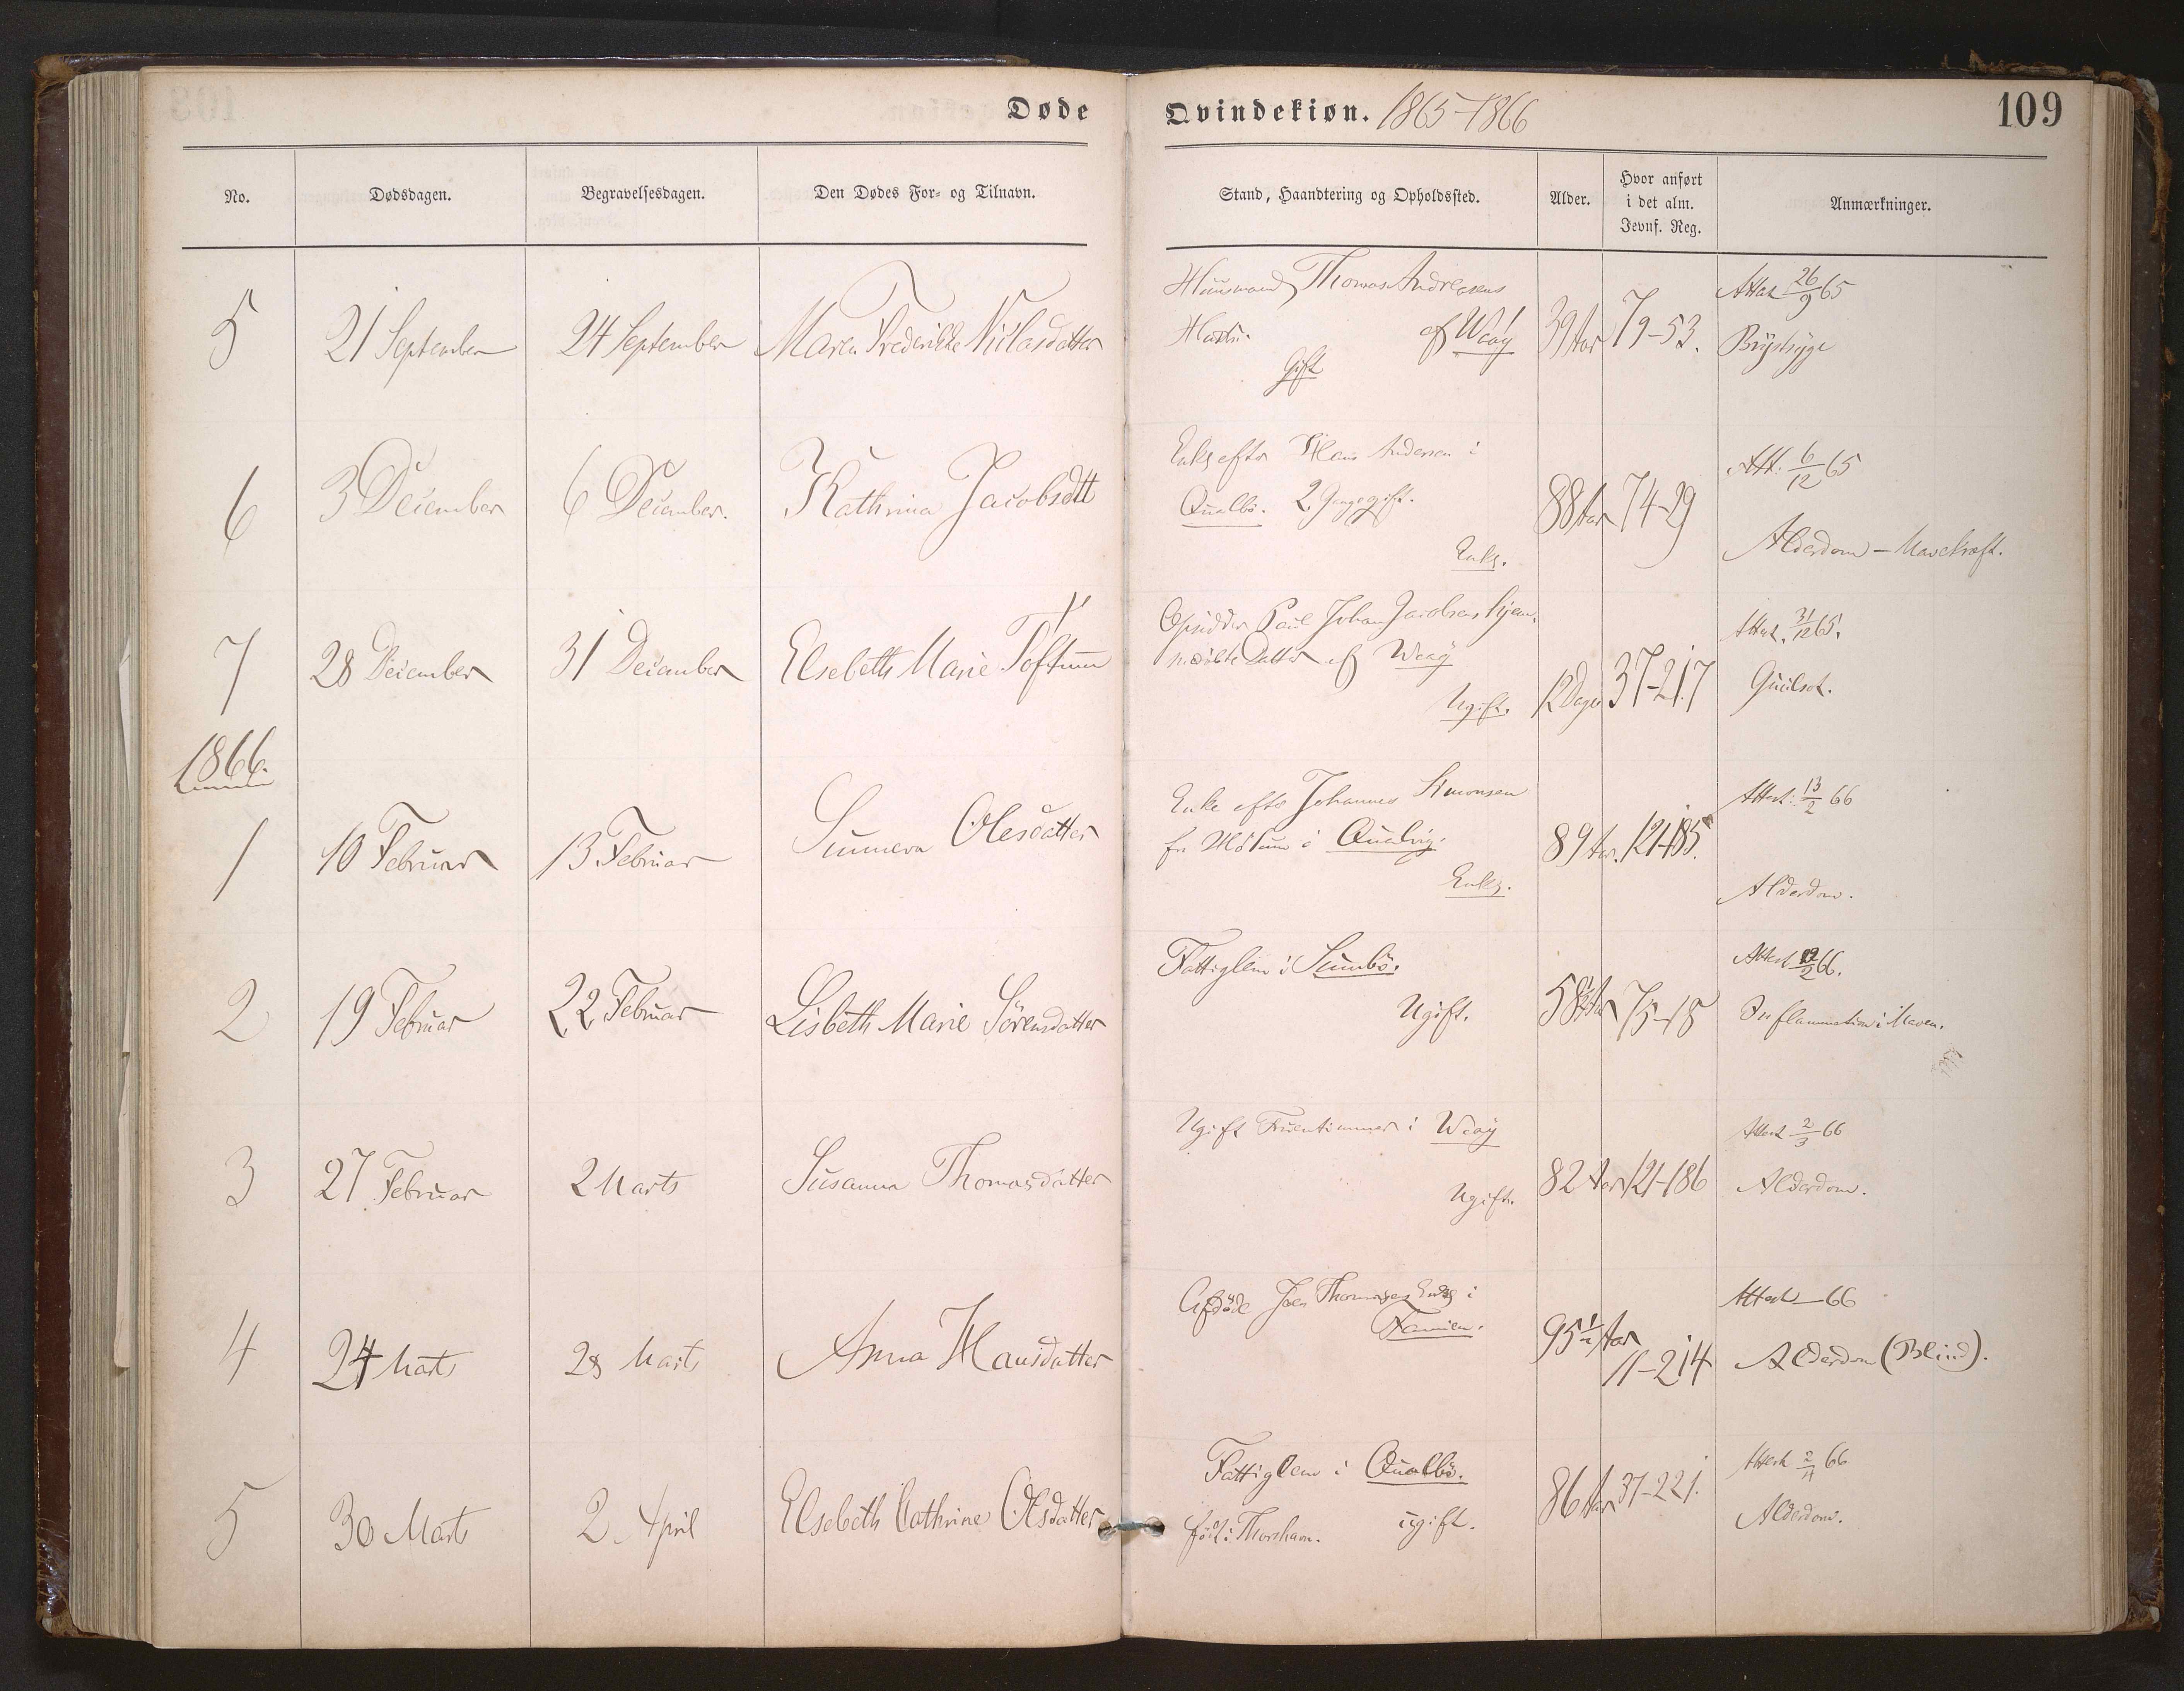 Døde
Qvindekiøn. 1865-1866
109
No.
Dødsdagen.
Begravelsesdagen.
Den Dødes For- og Tilnavn.
Stand, Haandtering og Opholdssted.
Alder.
Hvor anført
i det alm.
Jevnf. Reg.
Anmærkninger.
5
21 September
24 September
Maren Frederikke Niclasdatter
Huusmand Thomas Andreasens
Hustru. af Waag
Gift
39 Aar
79-53.
Attest 26/9 65
Brystsyge
6
3 December
6 December.
Kathrina Jacobsdtt
Enke efter Hans Andersen i
Qualbö. 2 Gange gift.
Enke.
88 Aar
74-29
Att. 6/12 65
Alderdom - Mavekræft.
7
28 December
31 December
Elsebeth Marie Toftum
Opsidder Paul Johan Jacobsens hjem-
medöbte Datter af Waag
Ugift.
12 Dage
37-217
Attest. 31/12 65.
Guulsot.
1866.
1
10 Februar
13 Februar
Sunneva Olesdatter
Enke efter Johannes Simonsen
i Qualvig.
Enke.
89 Aar.
121-185.
Attest: 13/2 66
Alderdom.
2
19 Februar
22 Februar
Lisbeth Marie Sörensdatter
Fattiglem i Sumbö.
Ugift.
58 Aar
75-18
Attest /2 66.
Inflammation i Maven.
3
27 Februar
2 Marts
Susanna Thomasdatter
Ugift Fruentimmer i Waag
Ugift.
82 Aar
121-186
Attest 2/3 66
Alderdom.
4
24 Marts
28 Marts
Anna Hansdatter
Afdöde Joen Thomasens Enke i
Famien.
95 1/2 Aar
11-214
Attest - 66
Alderdom (Blind).
5
30 Marts
2 April
Elsebeth Cathrine Olsdatter
Fattiglem i Qualbö.
födt i Thorshavn. ugift.
86 Aar
37-221.
Attest 2/4 66
Alderdom.